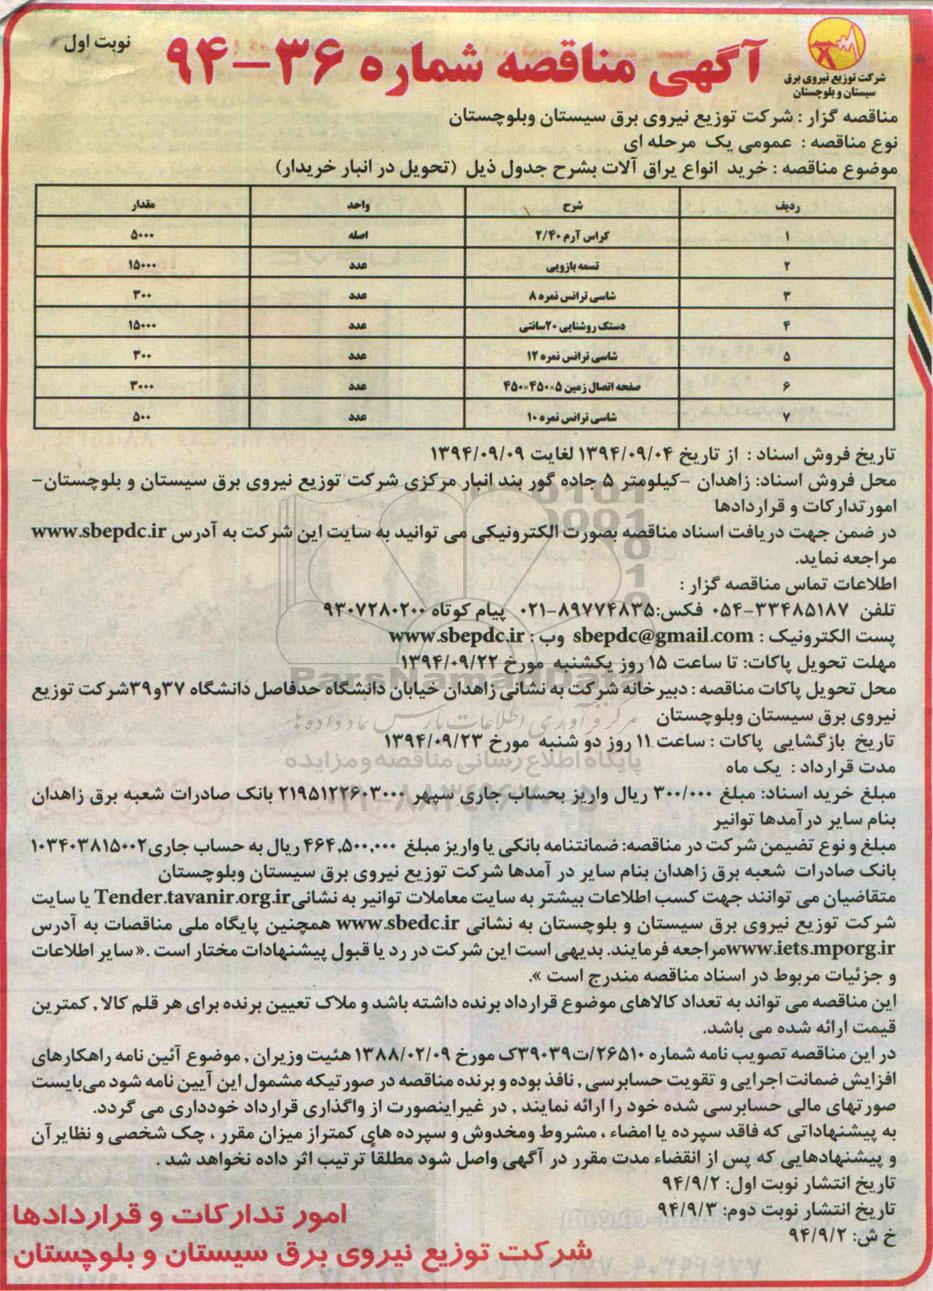 نوبت اول
آگهی مناقصه شماره ۳۶-۹۴
شرکت توزیع نیروی برق
سیستان و بلوچستان
مناقصه گزار : شرکت توزیع نیروی برق سیستان وبلوچستان
نوع مناقصه : عمومی یک مرحله ای
موضوع مناقصه : خرید انواع یراق آلات بشرح جدول ذیل (تحویل در انبار خریدار)
ردیف شرح واحد مقدار
۱ کراس آرم ۲/۴۰ اصله ۵۰۰۰
۲ تسمه بازویی عدد ۱۵۰۰۰
۳ شاسی ترانس نمره ۸ عدد ۳۰۰
۴ دستک روشنایی ۲۰سانتی عدد ۱۵۰۰۰
۵ شاسی ترانس نمره ۱۲ عدد ۳۰۰
۶ صفحه اتصال زمین ۵×۴۵۰×۴۵۰ عدد ۳۰۰۰
۷ شاسی ترانس نمره ۱۰ عدد ۵۰۰
تاریخ فروش اسناد : از تاریخ ۱۳۹۴/۰۹/۰۴ لغایت ۱۳۹۴/۰۹/۰۹
محل فروش اسناد: زاهدان -کیلومتر ۵ جاده گور بند انبار مرکزی شرکت توزیع نیروی برق سیستان و بلوچستان-
امور تدارکات و قراردادها
در ضمن جهت دریافت اسناد مناقصه بصورت الکترونیکی می توانید به سایت این شرکت به آدرس www.sbepdc.ir
مراجعه نماید.
اطلاعات تماس مناقصه گزار :
تلفن ۳۳۴۸۵۱۸۷-۰۵۴ فکس:۸۹۷۷۴۸۳۵-۰۲۱ پیام کوتاه ۹۳۰۷۲۸۰۲۰۰
پست الکترونیک : sbepdc@gmail.com وب : www.sbepdc.ir
مهلت تحویل پاکات: تا ساعت ۱۵ روز یکشنبه مورخ ۱۳۹۴/۰۹/۲۲
ParsNamadData
محل تحویل پاکات مناقصه : دبیرخانه شرکت به نشانی زاهدان خیابان دانشگاه حدفاصل دانشگاه ۳۷و۳۹شرکت توزیع
نیروی برق سیستان وبلوچستان
مرکز فرآوری اطلاعات پارس نماد داده ها
تاریخ بازگشایی پاکات : ساعت ۱۱ روز دو شنبه مورخ ۱۳۹۴/۰۹/۲۳
پایگاه اطلاع رسانی مناقصه و مزایده
مدت قرارداد : یک ماه
مبلغ خرید اسناد: مبلغ ۳۰۰/۰۰۰ ریال واریز بحساب جاری سپهر ۲۱۹۵۱۲۲۶۰۳۰۰۰ بانک صادرات شعبه برق زاهدان
بنام سایر درآمدها توانیر
مبلغ و نوع تضیمن شرکت در مناقصه: ضمانتنامه بانکی یا واریز مبلغ ۴۶۴,۵۰۰,۰۰۰ ریال به حساب جاری۱۰۳۴۰۳۸۱۵۰۰۲
بانک صادرات شعبه برق زاهدان بنام سایر در آمدها شرکت توزیع نیروی برق سیستان وبلوچستان
متقاضیان می توانند جهت کسب اطلاعات بیشتر به سایت معاملات توانیر به نشانیTender.tavanir.org.ir یا سایت
شرکت توزیع نیروی برق سیستان و بلوچستان به نشانی www.sbedc.ir همچنین پایگاه ملی مناقصات به آدرس
www.iets.mporg.irمراجعه فرمایند. بدیهی است این شرکت در رد یا قبول پیشنهادات مختار است .« سایر اطلاعات
و جزئیات مربوط در اسناد مناقصه مندرج است ».
این مناقصه می تواند به تعداد کالاهای موضوع قرارداد برنده داشته باشد و ملاک تعیین برنده برای هر قلم کالا , کمترین
قیمت ارائه شده می باشد.
در این مناقصه تصویب نامه شماره ۲۶۵۱۰/ت۳۹۰۳۹ک مورخ ۱۳۸۸/۰۲/۰۹ هئیت وزیران , موضوع آئین نامه راهکارهای
افزایش ضمانت اجرایی و تقویت حسابرسی , نافذ بوده و برنده مناقصه در صورتیکه مشمول این آیین نامه شود می‌بایست
صورتهای مالی حسابرسی شده خود را ارائه نمایند , در غیراینصورت از واگذاری قرارداد خودداری می گردد.
به پیشنهاداتی که فاقد سپرده یا امضاء ، مشروط ومخدوش و سپرده های کمتراز میزان مقرر ، چک شخصی و نظایر آن
و پیشنهادهایی که پس از انقضاء مدت مقرر در آگهی واصل شود مطلقاً ترتیب اثر داده نخواهد شد .
تاریخ انتشار نوبت اول: ۹۴/۹/۲
تاریخ انتشار نوبت دوم: ۹۴/۹/۳
خ ش: ۹۴/۹/۲
امور تدارکات و قراردادها
شرکت توزیع نیروی برق سیستان و بلوچستان